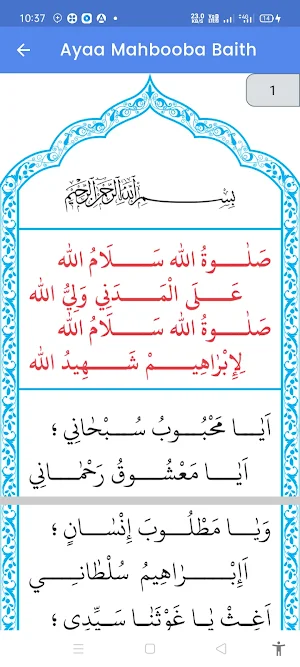 10:37
23.0 KB/S
14
Ayaa Mahbooba Baith
1
بِسْمِ اللهِ الرَّحْمٰنِ الرَّحِيْمِ
صَلٰوةُ الله سَلَامُ الله
عَلَى الْمَدَنِي وَلِيُّ الله
صَلٰوةُ الله سَلَامُ الله
لِإِبْرَاهِيمْ شَهِيدُ الله
اَيَا مَحْبُوبُ سُبْحَانِي ؛
اَيَا مَعْشُوقُ رَحْمَانِي
وَيَا مَطْلُوبَ إِنْسَانٍ ؛
اَإِبْرَاهِيمُ سُلْطَانِي
اَغِثْ يَا غَوْثَنَا سَيِّدِى ؛